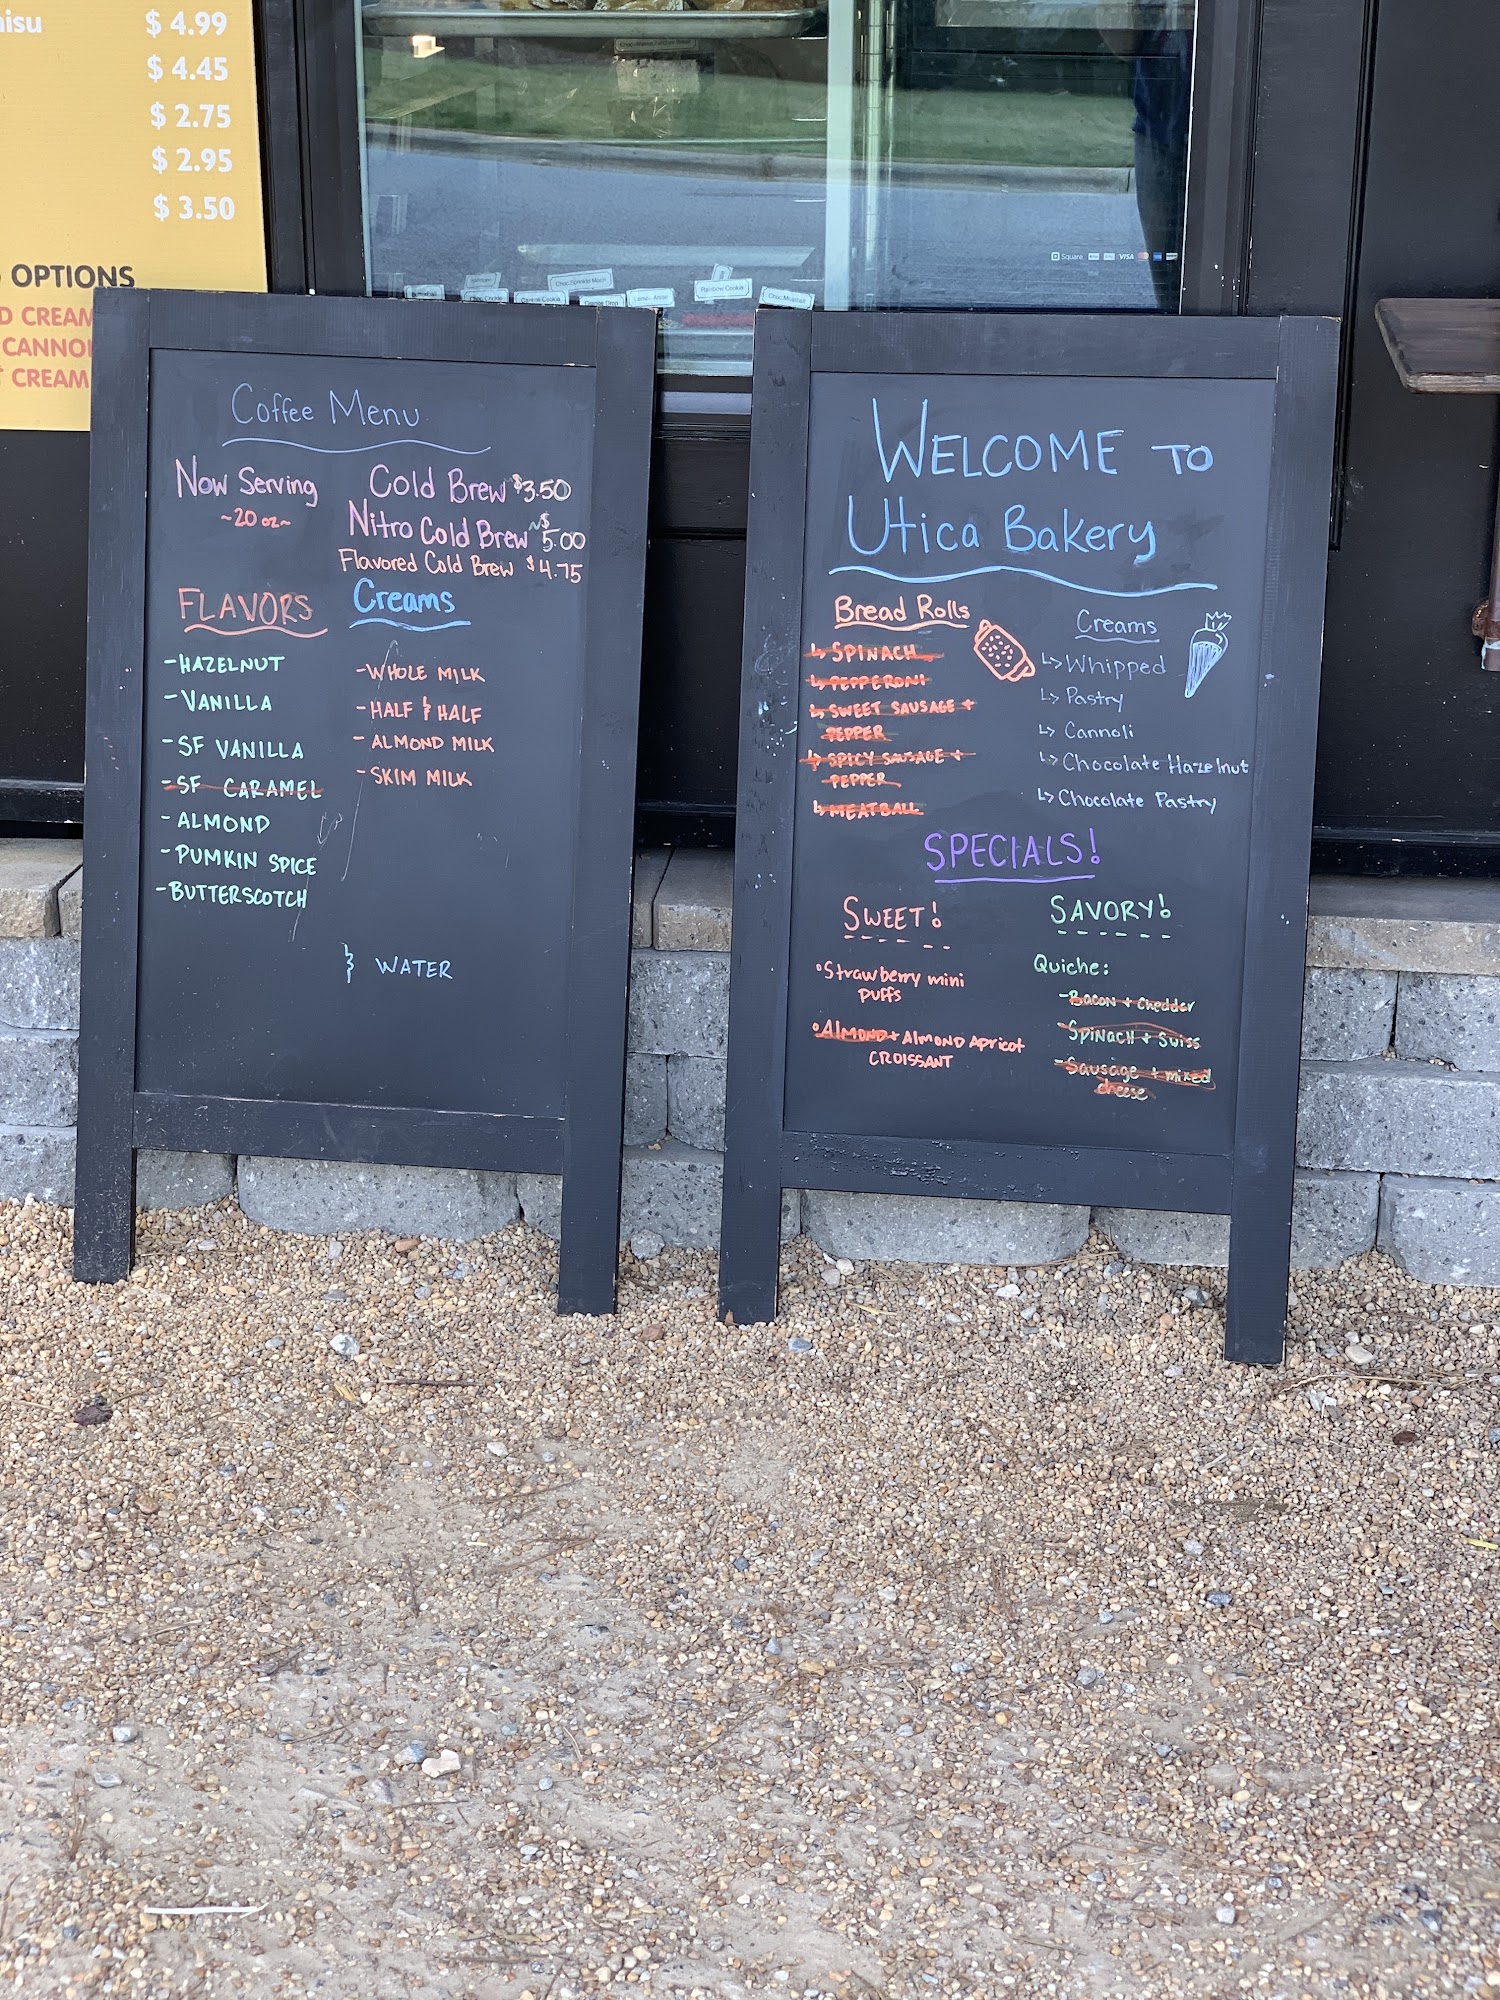 $ 4.99
$ 4.45
$ 2.75
$ 2.95
$ 3.50
OPTIONS
CREAM
CANNO
CREAM
Square VISA
Rainbow Cookie
Coffee Menu
Now Serving
~20 oz~
Cold Brew $3.50
Nitro Cold Brew ~ $5.00
Flavored Cold Brew $4.75
FLAVORS
-HAZELNUT
-VANILLA
-SF VANILLA
-SF CARAMEL
-ALMOND
-PUMKIN SPICE
-BUTTERSCOTCH
Creams
-WHOLE MILK
-HALF & HALF
-ALMOND MILK
-SKIM MILK
& WATER
WELCOME TO
Utica Bakery
Bread Rolls
↳ SPINACH
↳ PEPPERONI
↳ SWEET SAUSAGE +
PEPPER
↳ SPICY SAUSAGE +
PEPPER
↳ MEATBALL
Creams
↳ Whipped
↳ Pastry
↳ Cannoli
↳ Chocolate Hazelnut
↳ Chocolate Pastry
SPECIALS!
SWEET!
•Strawberry mini
puffs
•ALMOND + ALMOND APricot
CROISSANT
SAVORY!
Quiche:
-Bacon + Cheddar
-SPiNacH + Swiss
-Sausage + mixed
cheese